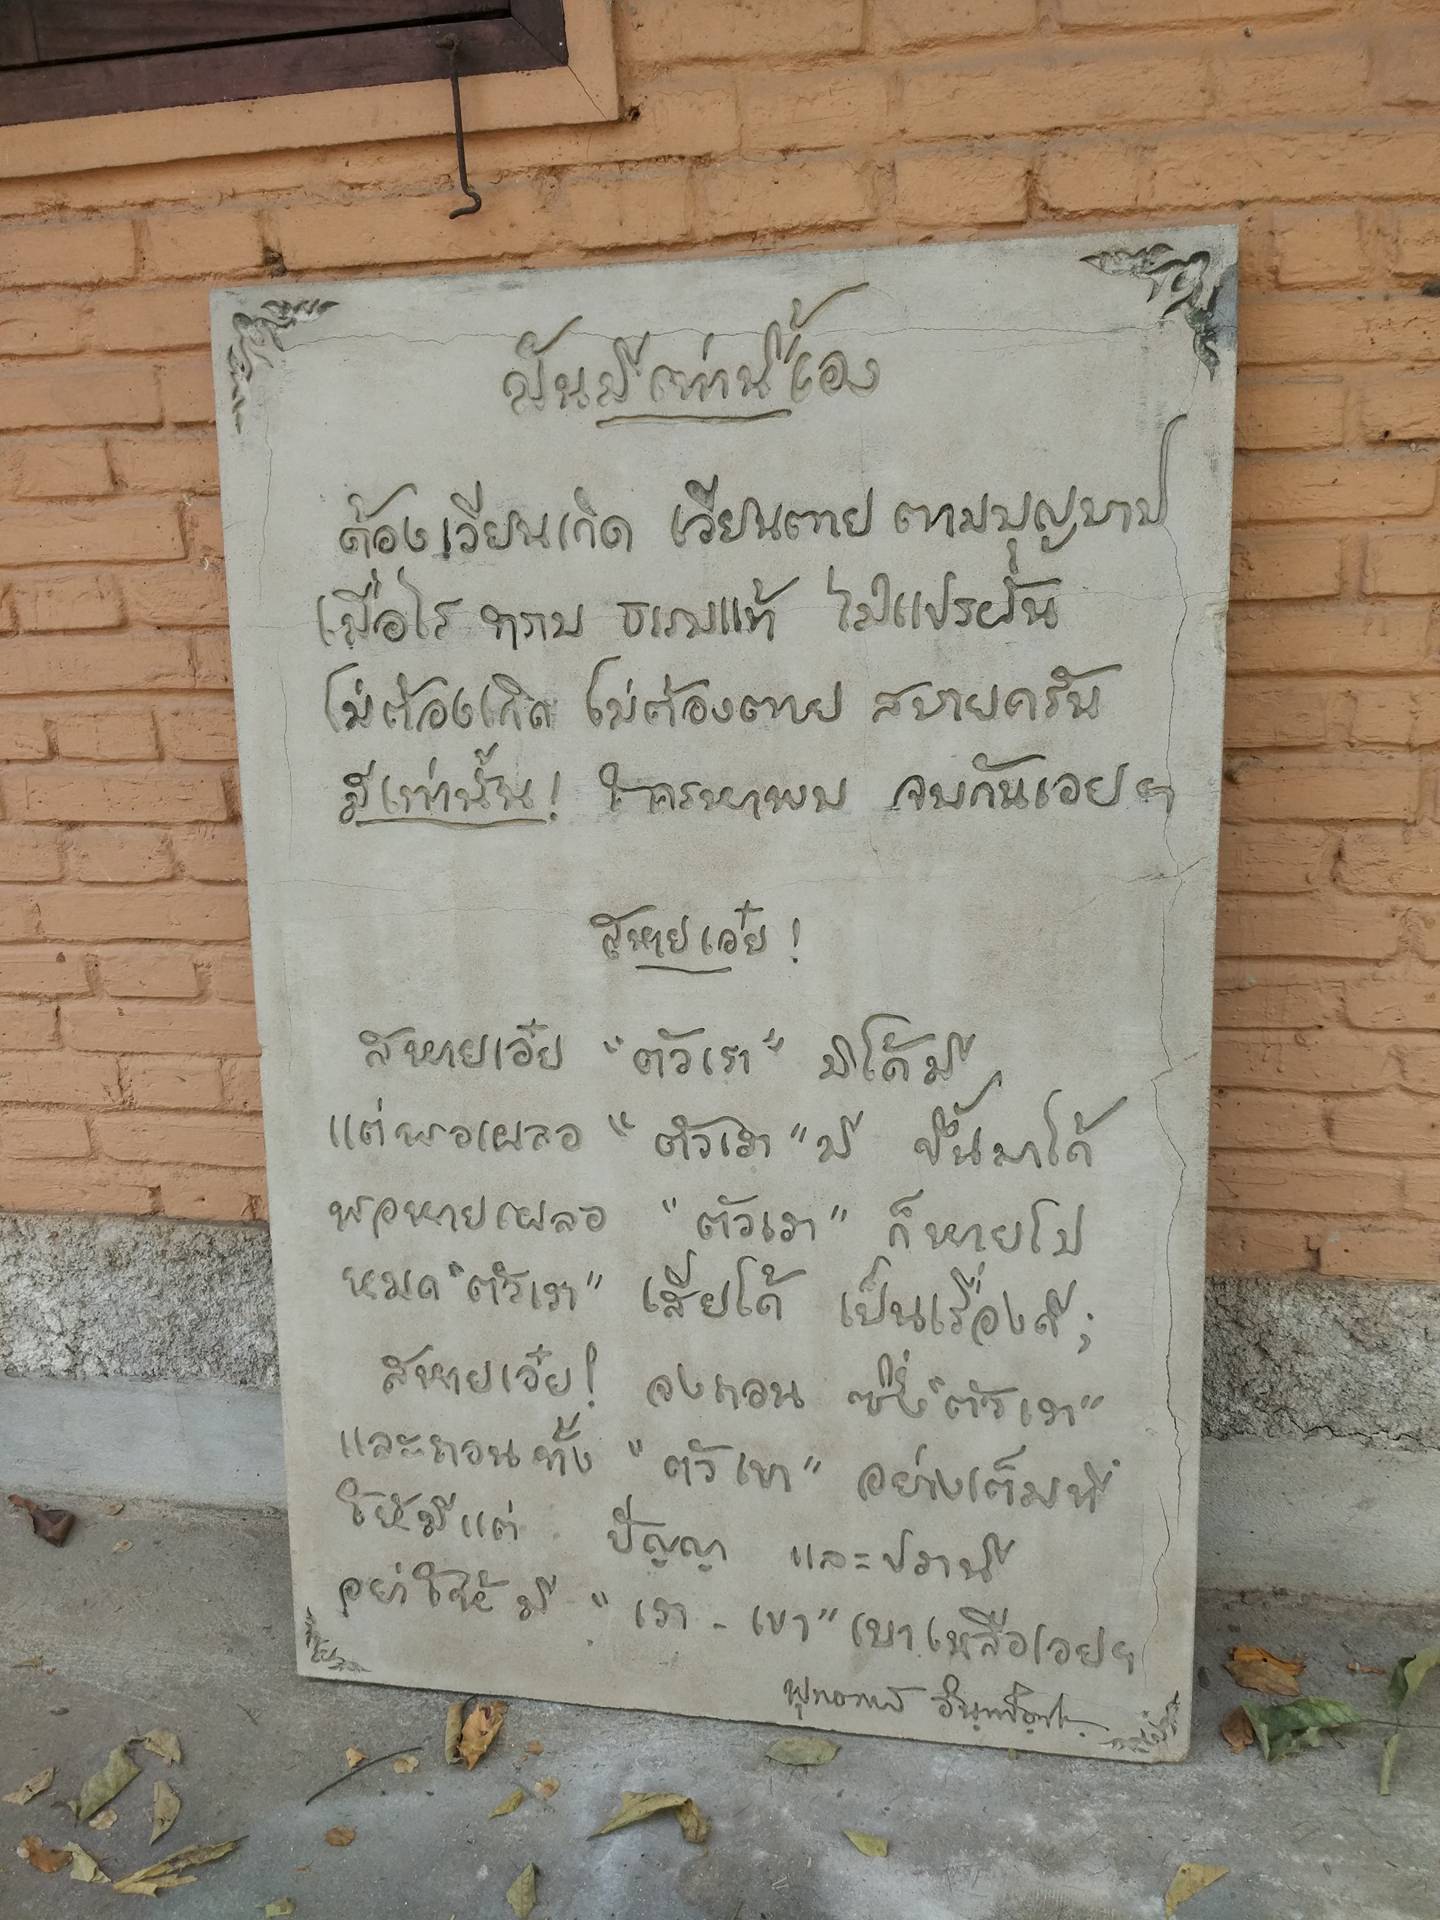 มันมีเท่านี้เอง
ต้องเวียนเกิด เวียนตาย ตามบุญบาป
เมื่อไร ทราบ ธรรมแท้ ไม่แปรผัน
ไม่ต้องเกิด ไม่ต้องตาย สบายครัน
มีเท่านั้น! ใครหาพบ จบกันเอยฯ
สหายเอ๋ย!
สหายเอ๋ย "ตัวเรา" มิได้มี
แต่พอเผลอ "ตัวเรา" มี ขึ้นมาได้
พอหายเผลอ "ตัวเรา" ก็หายไป
หมด "ตัวเรา" เสียได้ เป็นเรื่องดี;
สหายเอ๋ย! จงถอน ซึ่ง "ตัวเรา"
และถอนทั้ง "ตัวเขา" อย่างเต็มที่
ให้มีแต่ ปัญญา และปรานี
อย่าให้มี "เรา - เขา" เบาเหลือเอยฯ
พุทธทาส อินทปัญโญ